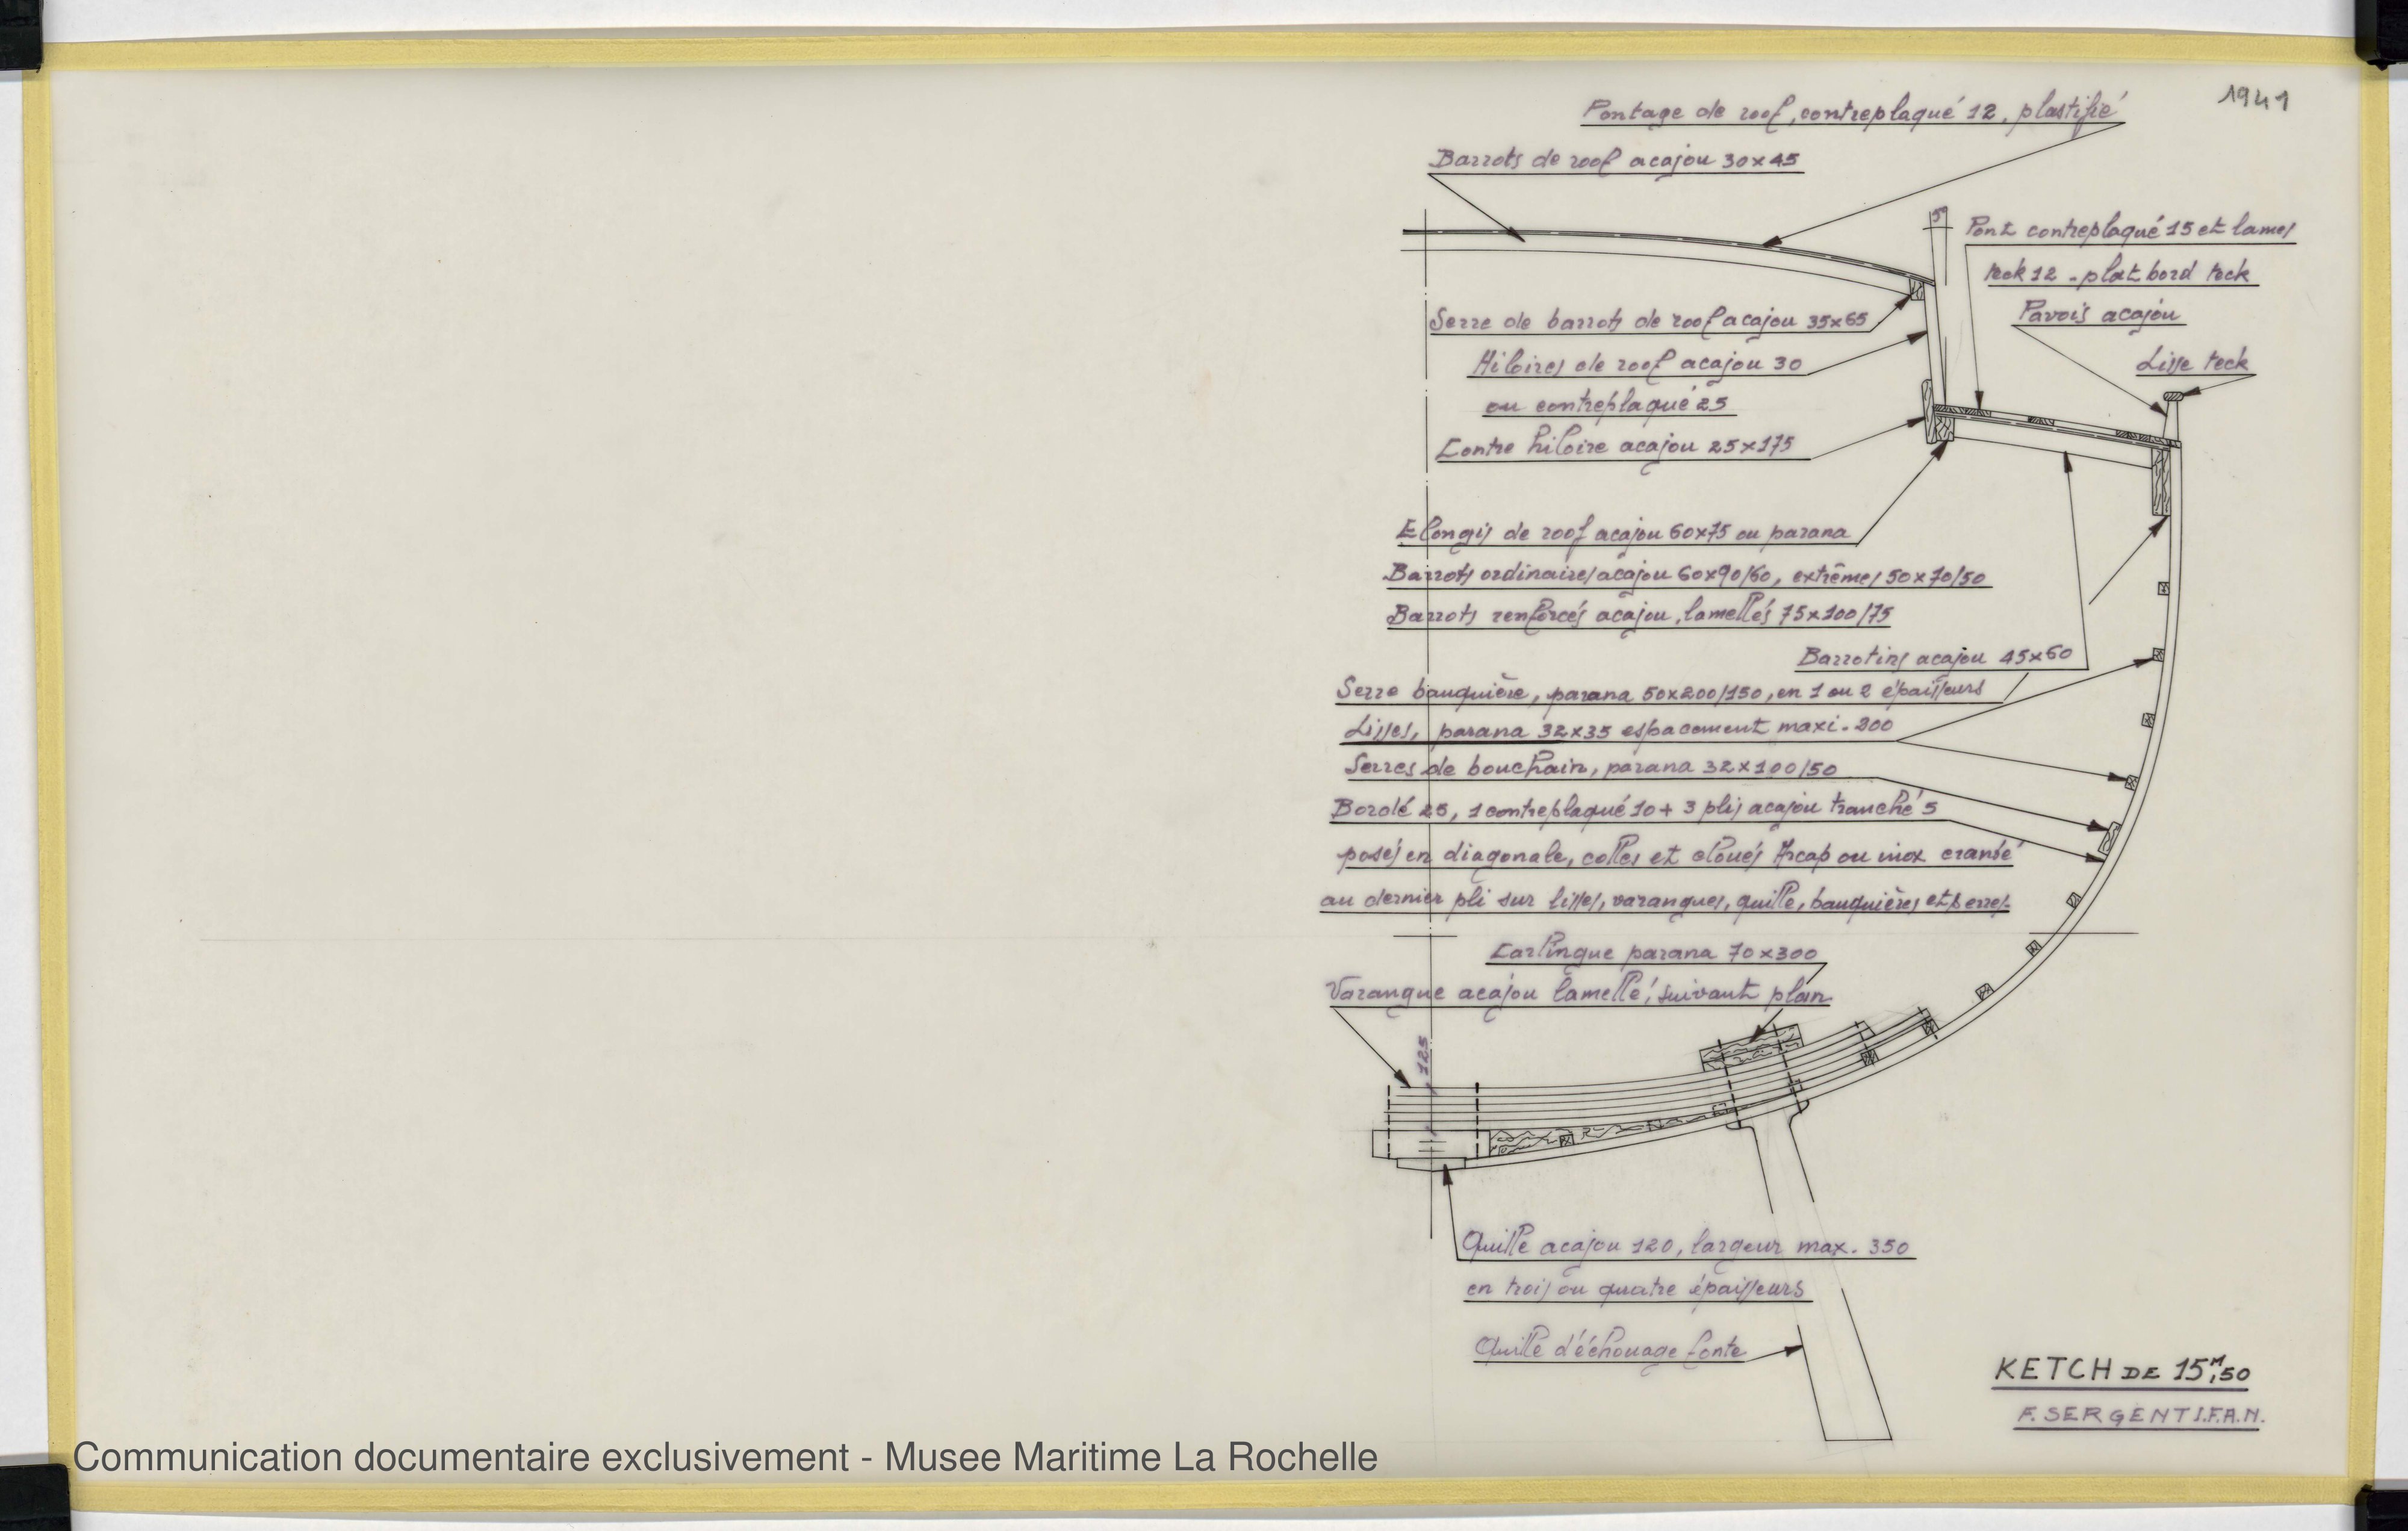 1941
Pontage de roof, contreplaqué 12, plastifié
Barrots de roof acajou 30x45
5°
Pont contreplaqué 15 et lames
teck 12 - plat bord teck
Pavois acajou
Lisse teck
Serre de barrots de roof acajou 35x65
Hiloires de roof acajou 30
ou contreplaqué 25
Contre hiloire acajou 25x175
Elongis de roof acajou 60x75 ou parana
Barrots ordinaires acajou 60x90/60, extrêmes 50x70/50
Barrots renforcés acajou, lamellés 75x100/75
Barrotins acajou 45x60
Serre bauquière, parana 50x200/150, en 1 ou 2 épaisseurs
Lisses, parana 32x35 espacement maxi. 200
Serres de bouchain, parana 32x100/50
Bordé 25, 1 contreplaqué 10 + 3 plis acajou tranché 5
posés en diagonale, collés et cloués Arcap ou inox cranté
au dernier pli sur lisses, varangues, quille, bauquières et serres.
Carlingue parana 70x300
Varangue acajou lamellé, suivant plan
125
Quille acajou 120, largeur max. 350
en trois ou quatre épaisseurs
Quille d'échouage fonte
KETCH DE 15M,50
F. SERGENT I.F.A.N.
Communication documentaire exclusivement - Musee Maritime La Rochelle